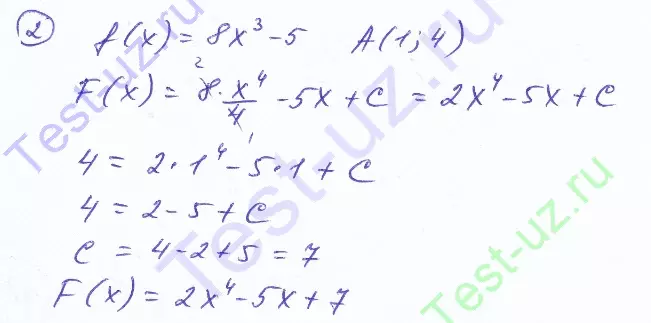 2 f(x) = 8x³ - 5 A(1; 4)
F(x) = 8 · x⁴/4 - 5x + C = 2x⁴ - 5x + C
4 = 2 · 1⁴ - 5 · 1 + C
4 = 2 - 5 + C
C = 4 - 2 + 5 = 7
F(x) = 2x⁴ - 5x + 7
Test-uz.ru
Test-uz.ru
Test-uz.ru